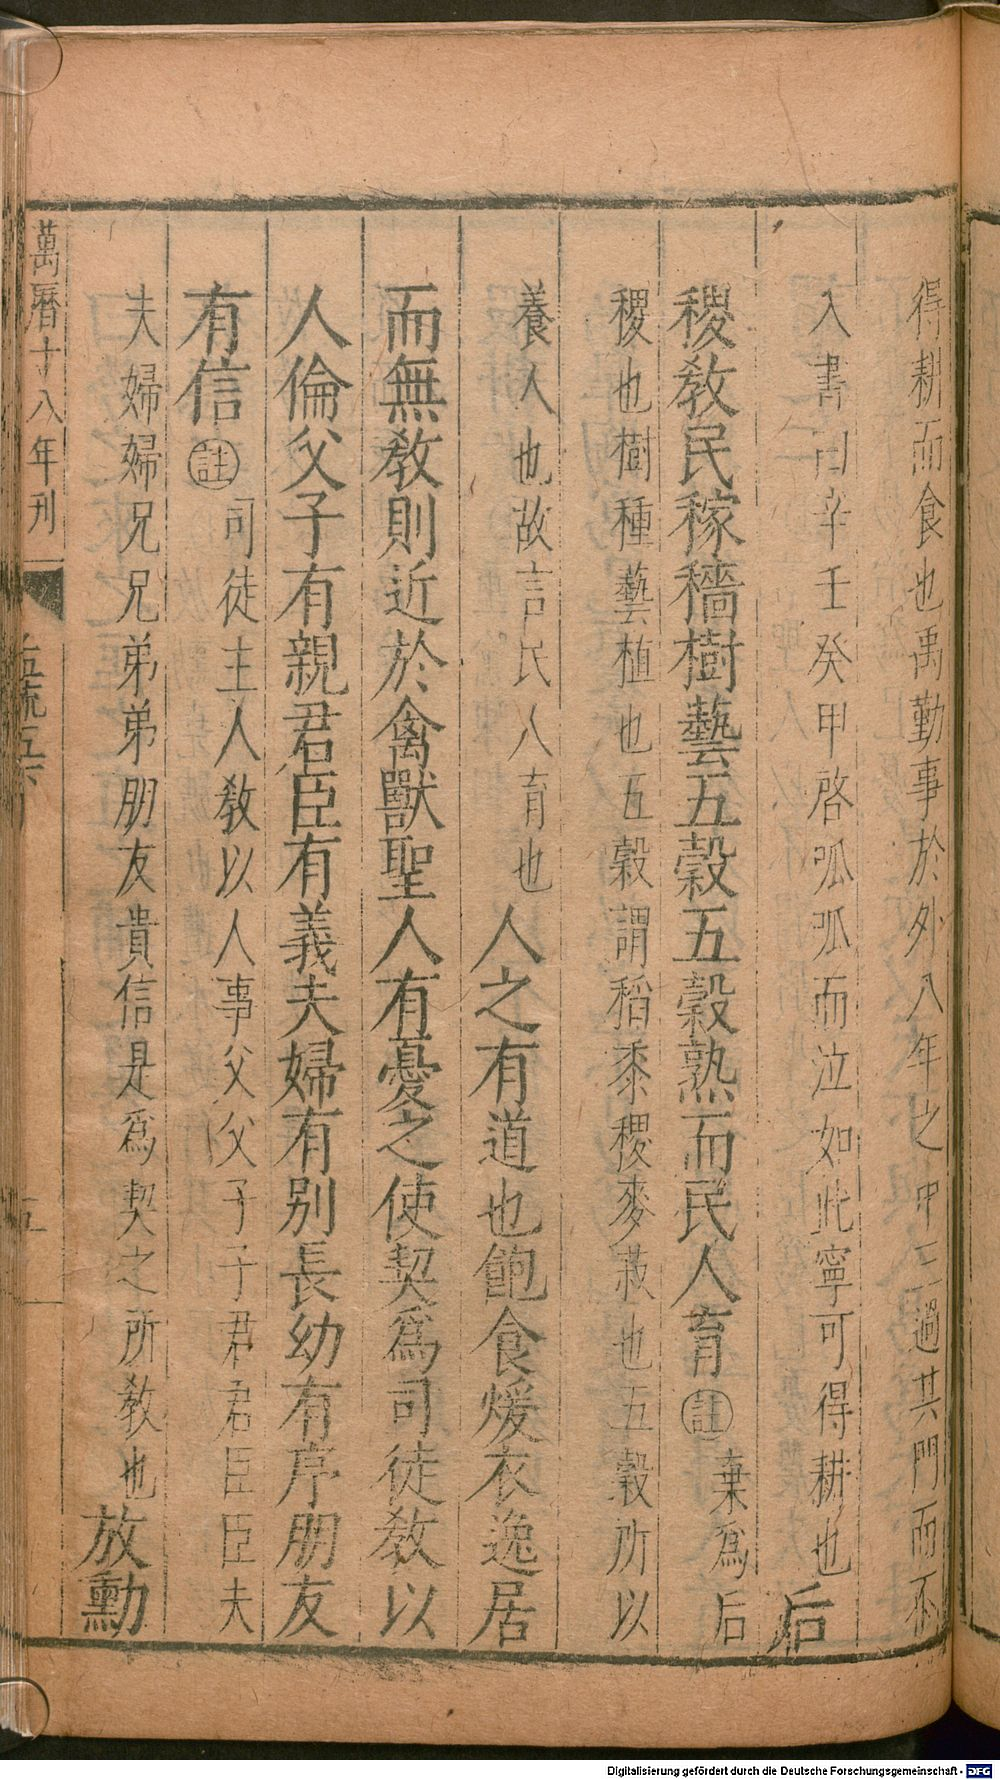 得耕而食也禹勤事於外八年之中三過其門而不
入書曰辛壬癸甲啓呱呱而泣如此寧可得耕也后
稷教民稼穡樹藝五穀五穀熟而民人育註棄爲后
稷也樹種藝植也五穀謂稻黍稷麥菽也五穀所以
養人也故言民人育也人之有道也飽食煖衣逸居
而無教則近於禽獸聖人有憂之使契爲司徒教以
人倫父子有親君臣有義夫婦有別長幼有序朋友
有信註司徒主人教以人事父父子子君君臣臣夫
夫婦婦兄兄弟弟朋友貴信是爲契之所教也放勳
萬曆十八年刊
五
Digitalisierung gefördert durch die Deutsche Forschungsgemeinschaft - DFG